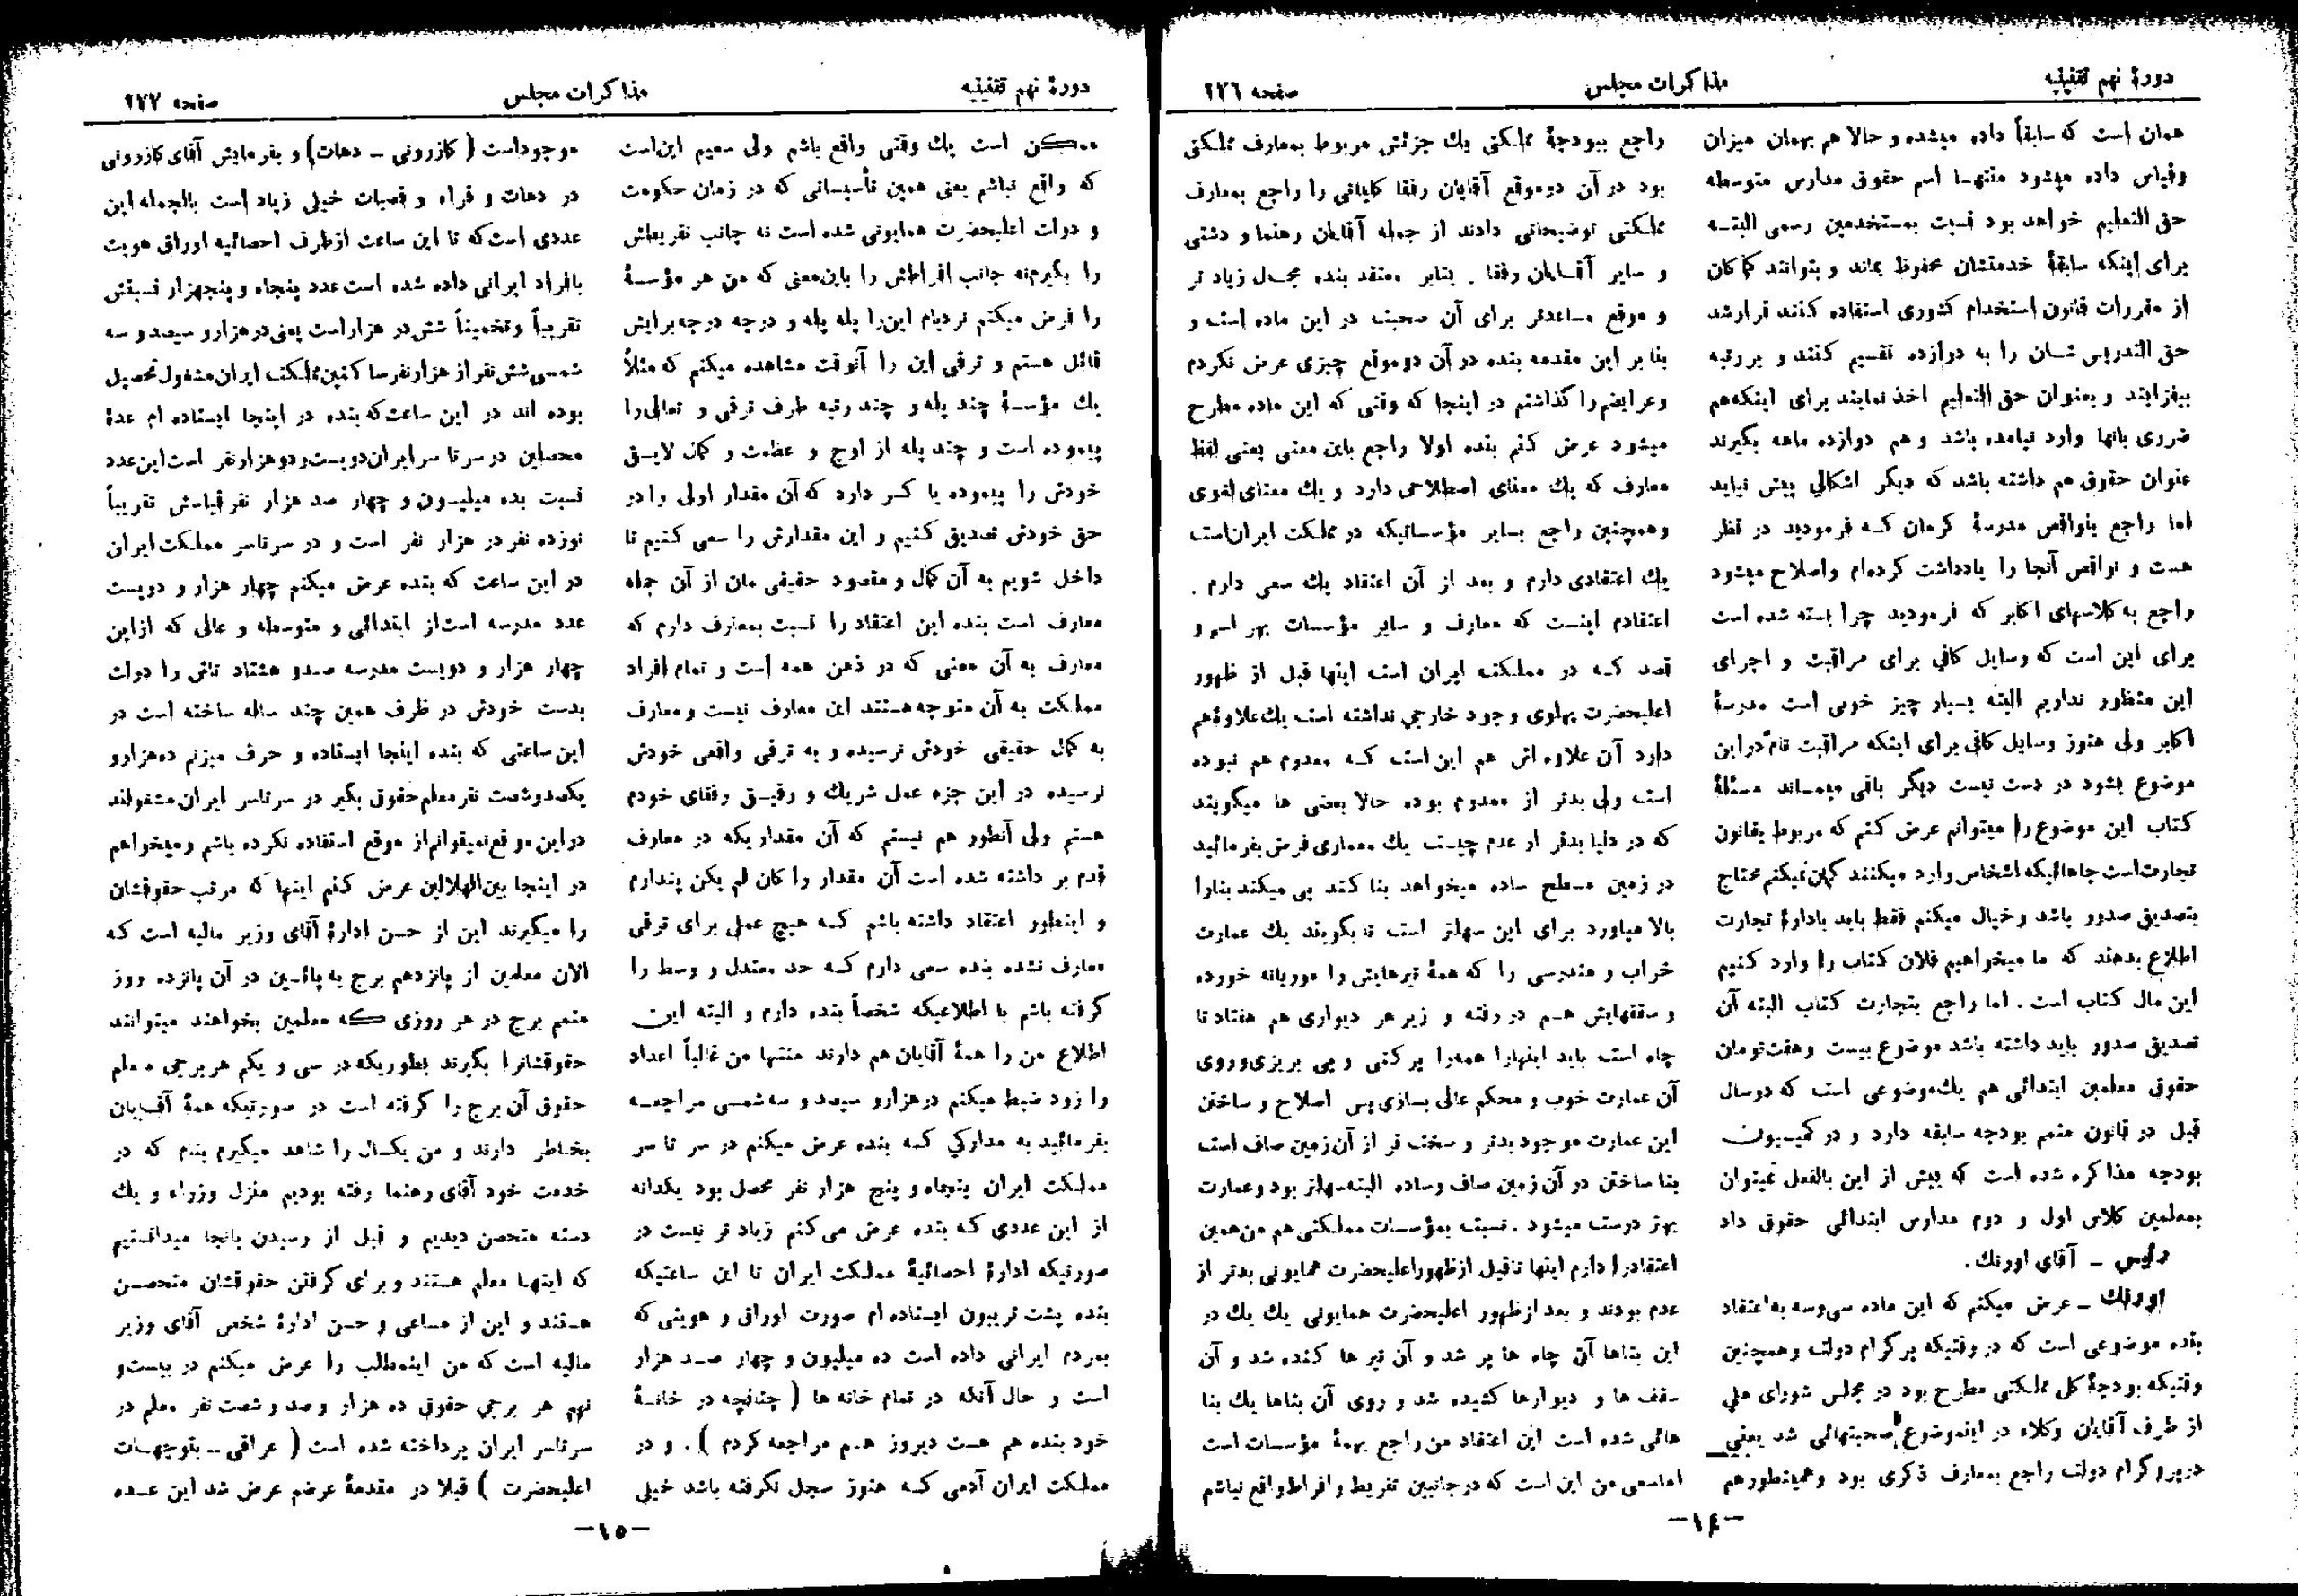 دورهٔ نهم تقنینیه
مذاکرات مجلس
صفحه ٩٧٦
همان است که سابقاً داده میشده و حالا هم بهمان میزان
وقیاس داده میشود منتهـا اسم حقوق مدارس متوسطه
حق التعلیم خواهد بود نسبت بمستخدمین رسمی البتـه
برای اینکه سابقهٔ خدمتشان محفوظ بماند و بتوانند کماکان
از مقررات قانون استخدام کشوری استفاده کنند قرار شد
حق التدریس شـان را به دوازده تقسیم کنند و بر رتبه
بیفزایند و بعنوان حق التعلیم اخذ نمایند برای اینکه هم
ضرری بآنها وارد نیامده باشد و هم دوازده ماهه بگیرند
عنوان حقوق هم داشته باشد که دیگر اشکالی پیش نیاید
اما راجع بنواقص مدرسهٔ کرمان کـه فرمودید در نظر
هست و نواقص آنجا را یادداشت کرده‌ام واصلاح میشود
راجع به کلاسهای اکابر که فرمودید چرا بسته شده است
برای این است که وسایل کافی برای مراقبت و اجرای
این منظور نداریم البته بسیار چیز خوبی است مدرسهٔ
اکابر ولی هنوز وسایل کافی برای اینکه مراقبت تام در این
موضوع بشود در دست نیست دیگر باقی میمـاند مسئلهٔ
کتاب این موضوع را میتوانم عرض کنم که مربوط بقانون
تجارت است جاهائیکه اشخاص وارد میکنند گمان نمیکنم محتاج
بتصدیق صدور باشد و خیال میکنم فقط باید بادارهٔ تجارت
اطلاع بدهند که ما میخواهیم فلان کتاب را وارد کنیم
این مال کتاب است . اما راجع بتجارت کتاب البته آن
تصدیق صدور باید داشته باشد موضوع بیست وهفت تومان
حقوق معلمین ابتدائی هم یك موضوعی است که دو سال
قبل در قانون متمم بودجه سابقه دارد و در کمیسیون
بودجه مذاکره شده است که بیش از این بالفعل نمیتوان
بمعلمین کلاس اول و دوم مدارس ابتدائی حقوق داد
رئیس ـ آقای اورنك .
اورنك ـ عرض میکنم که این ماده سی و سه به اعتقاد
بنده موضوعی است که در وقتیکه پرگرام دولت وهمچنین
وقتیکه بودجهٔ کل مملکتی مطرح بود در مجلس شورای ملی
از طرف آقایان وکلاء در اینموضوع صحبتهائی شد یعنی
در پروگرام دولت راجع بمعارف ذکری بود وهمینطور هم
راجع ببودجهٔ مملکتی یك جزئش مربوط بمعارف مملکتی
بود در آن دو موقع آقایان رفقا کلیاتی را راجع بمعارف
مملکتی توضیحاتی دادند از جمله آقایان رهنما و دشتی
و سایر آقـایان رفقا . بنابر معتقد بنده مجـال زیاد تر
و موقع مساعدتر برای آن صحبت در این ماده است و
بنا بر این مقدمه بنده در آن دو موقع چیزی عرض نکردم
وعرایضم را گذاشتم در اینجا که وقتی که این ماده مطرح
میشود عرض کنم بنده اولا راجع باین معنی یعنی لفظ
معارف که یك معنای اصطلاحی دارد و یك معنای لغوی
وهمچنین راجع بسایر مؤسساتیکه در مملکت ایران است
یك اعتقادی دارم و بعد از آن اعتقاد یك سعی دارم .
اعتقادم اینست که معارف و سایر مؤسسات بهر اسم و
قصد کـه در مملکت ایران است اینها قبل از ظهور
اعلیحضرت پهلوی وجود خارجی نداشته است یك علاوهٔ هم
دارد آن علاوه اش هم این است کـه معدوم هم نبوده
است ولی بدتر از معدوم بوده حالا بعضی ها میگویند
که در دنیا بدتر از عدم چیست یك معماری فرض بفرمائید
در زمین مسطح ساده میخواهد بنا کند پی میکند بنا را
بالا میاورد برای این سهلتر است تا بگویند یك عمارت
خراب و مندرسی را که همهٔ تیرهایش را موریانه خورده
و سقفهایش هـم در رفته و زیر هر دیواری هم هفتاد تا
چاه است باید اینهارا همه را پر کنی و پی بریزی و روی
آن عمارت خوب و محکم عالی بسازی پس اصلاح و ساختن
این عمارت موجود بدتر و سخت تر از آن زمین صاف است
بنا ساختن در آن زمین صاف وساده البته سهلتر بود وعمارت
بهتر درست میشود . نسبت بمؤسسات مملکتی هم من همین
اعتقاد را دارم اینها تا قبل از ظهور اعلیحضرت همایونی بدتر از
عدم بودند و بعد از ظهور اعلیحضرت همایونی یك یك در
این بناها آن چاه ها پر شد و آن تیر ها کنده شد و آن
سقف ها و دیوارها کشیده شد و روی آن بناها یك بنا
هائی شده است این اعتقاد من راجع بهمهٔ مؤسسات است
اما سعی من این است که در جانبین تفریط و افراط واقع نباشم
ـ١٤ـ
دورهٔ نهم تقنینیه
مذاکرات مجلس
صفحه ٩٧٧
ممکن است یك وقتی واقع باشم ولی سعیم این است
که واقع نباشم یعنی همین تأسیساتی که در زمان حکومت
و دولت اعلیحضرت همایونی شده است نه جانب تفریطش
را بگیرم نه جانب افراطش را باین معنی که من هر مؤسسهٔ
را فرض میکنم نردبام این را پله پله و درجه درجه برایش
قائل هستم و ترقی این را آنوقت مشاهده میکنم که مثلاً
یك مؤسسهٔ چند پله و چند رتبه طرف ترقی و تعالی را
پیموده است و چند پله از اوج و عظمت و کمال لایـق
خودش را پیموده یا کسر دارد که آن مقدار اولی را در
حق خودش تصدیق کنیم و این مقدارش را سعی کنیم تا
داخل شویم به آن کمال و مقصود حقیقی مان از آن جمله
معارف است بنده این اعتقاد را نسبت بمعارف دارم که
معارف به آن معنی که در ذهن همه است و تمام افراد
مملکت به آن متوجه هستند این معارف نیست و معارف
به کمال حقیقی خودش نرسیده و به ترقی واقعی خودش
نرسیده در این جزء عمل شریك و رفیـق رفقای خودم
هستم ولی آنطور هم نیستم که آن مقداریکه در معارف
قدم بر داشته شده است آن مقدار را کان لم یکن پندارم
و اینطور اعتقاد داشته باشم کـه هیچ عملی برای ترقی
معارف نشده بنده سعی دارم کـه حد معتدل و وسط را
گرفته باشم با اطلاعیکه شخصاً بنده دارم و البته این
اطلاع من را همهٔ آقایان هم دارند منتها من غالباً اعداد
را زود ضبط میکنم در هزار و سیصد و سه شمسی مراجعـه
بفرمائید به مدارکی کـه بنده عرض میکنم در سر تا سر
مملکت ایران پنجاه و پنج هزار نفر محصل بود یکدانه
از این عددی کـه بنده عرض می کنم زیاد تر نیست در
صورتیکه ادارهٔ احصائیهٔ مملکت ایران تا این ساعتیکه
بنده پشت تریبون ایستاده ام صورت اوراق و هویتی که
بمردم ایرانی داده است ده میلیون و چهار صـد هزار
است و حال آنکه در تمام خانه ها ( چنانچه در خانـهٔ
خود بنده هم هست دیروز هـم مراجعه کردم ) . و در
مملکت ایران آدمی کـه هنوز سجل نگرفته باشد خیلی
موجود است ( کازرونی ـ دهات ) و بفرمایش آقای کازرونی
در دهات و قراء و قصبات خیلی زیاد است بالجمله این
عددی است که تا این ساعت از طرف احصائیه اوراق هویت
بافراد ایرانی داده شده است عدد پنجاه و پنجهزار نسبتش
تقریباً وتخمیناً شش در هزار است یعنی در هزار و سیصد و سه
شمسی شش نفر از هزار نفر ساکنین مملکت ایران مشغول تحصیل
بوده اند در این ساعت که بنده در اینجا ایستاده ام عدهٔ
محصلین در سر تا سر ایران دویست و دو هزار نفر است این عدد
نسبت بده میلیـون و چهار صد هزار نفر قیاسش تقریباً
نوزده نفر در هزار نفر است و در سرتاسر مملکت ایران
در این ساعت که بنده عرض میکنم چهار هزار و دویست
عدد مدرسه است از ابتدائی و متوسطه و عالی که از این
چهار هزار و دویست مدرسه صدو هشتاد تاش را دولت
بدست خودش در ظرف همین چند ساله ساخته است در
این ساعتی که بنده اینجا ایستاده و حرف میزنم ده هزار و
یکصد و شصت نفر معلم حقوق بگیر در سرتاسر ایران مشغولند
در این موقع نمیتوانم از موقع استفاده نکرده باشم ومیخواهم
در اینجا بین الهلالین عرض کنم اینها که مرتب حقوقشان
را میگیرند این از حسن ادارهٔ آقای وزیر مالیه است کـه
الان معلمین از پانزدهم برج به پائـین در آن پانزده روز
متمم برج در هر روزی که معلمین بخواهند میتوانند
حقوقشانرا بگیرند بطوریکه در سی و یکم هر برجی معلم
حقوق آن برج را گرفته است در صورتیکه همهٔ آقـایان
بخـاطر دارند و من یکسال را شاهد میگیرم بنام که در
خدمت خود آقای رهنما رفته بودیم منزل وزراء و یك
دسته متحصن دیدیم و قبل از رسیدن بآنجا میدانستیم
که اینهـا معلم هستند و برای گرفتن حقوقشان متحصـن
هستند و این از مساعی و حسن ادارهٔ شخص آقای وزیر
مالیه است که من اینمطلب را عرض میکنم در بیست و
نهم هر برجی حقوق ده هزار و صد و شصت نفر معلم در
سرتاسر ایران پرداخته شده است ( عراقی ـ بتوجهـات
اعلیحضرت ) قبلا در مقدمهٔ عرضم عرض شد این عـده
ـ١٥ـ